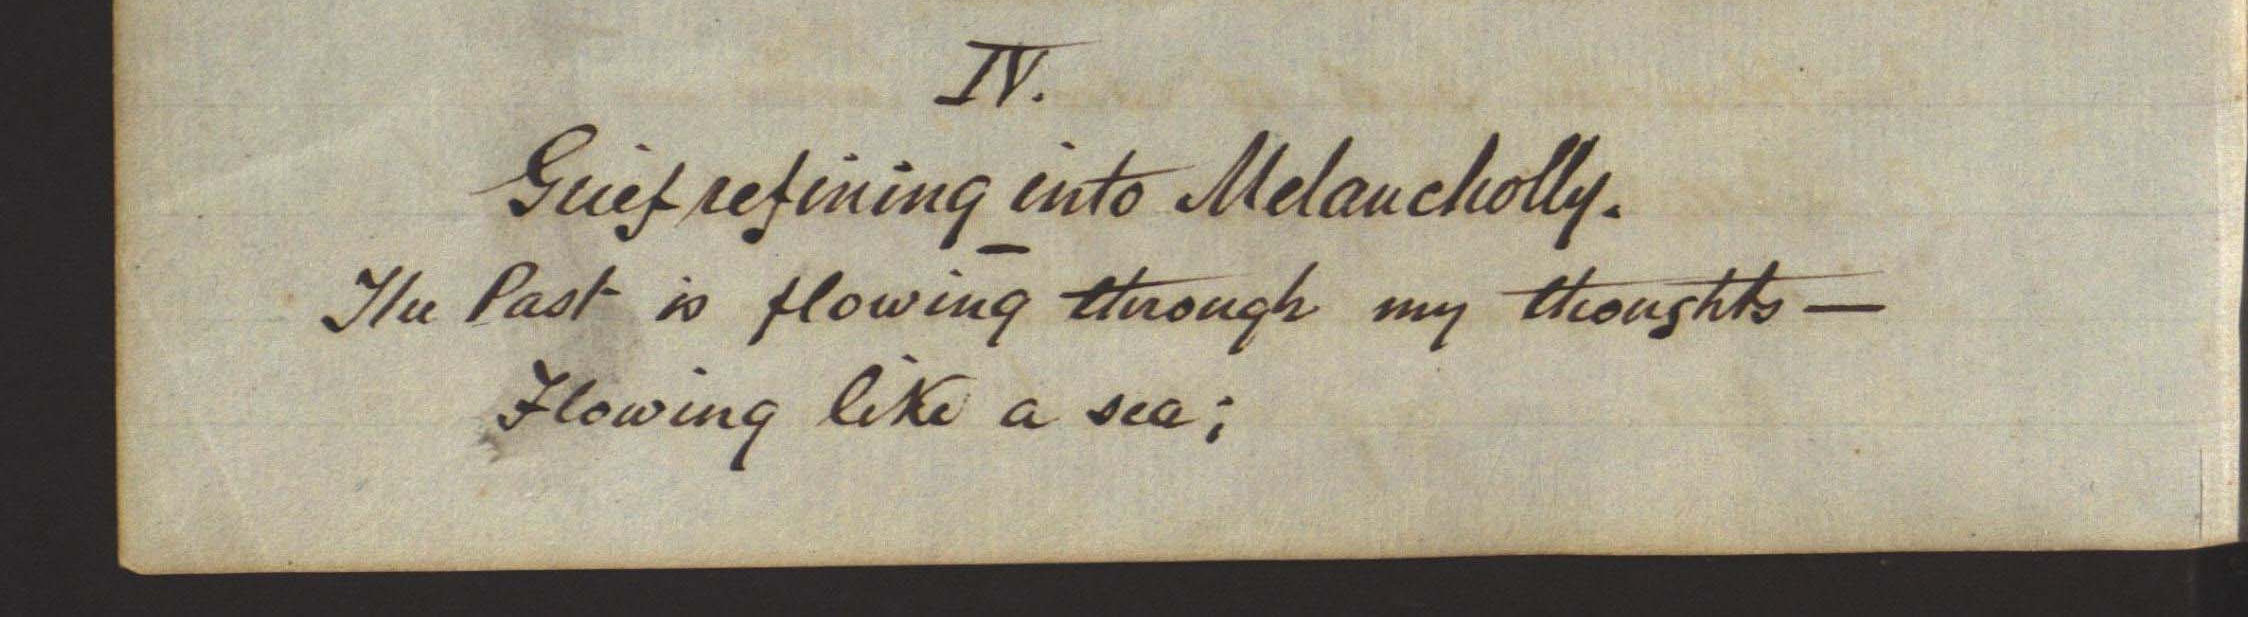 IV.
Grief refining into Melancholly.
—
The Past is flowing through my thoughts —
Flowing like a sea;